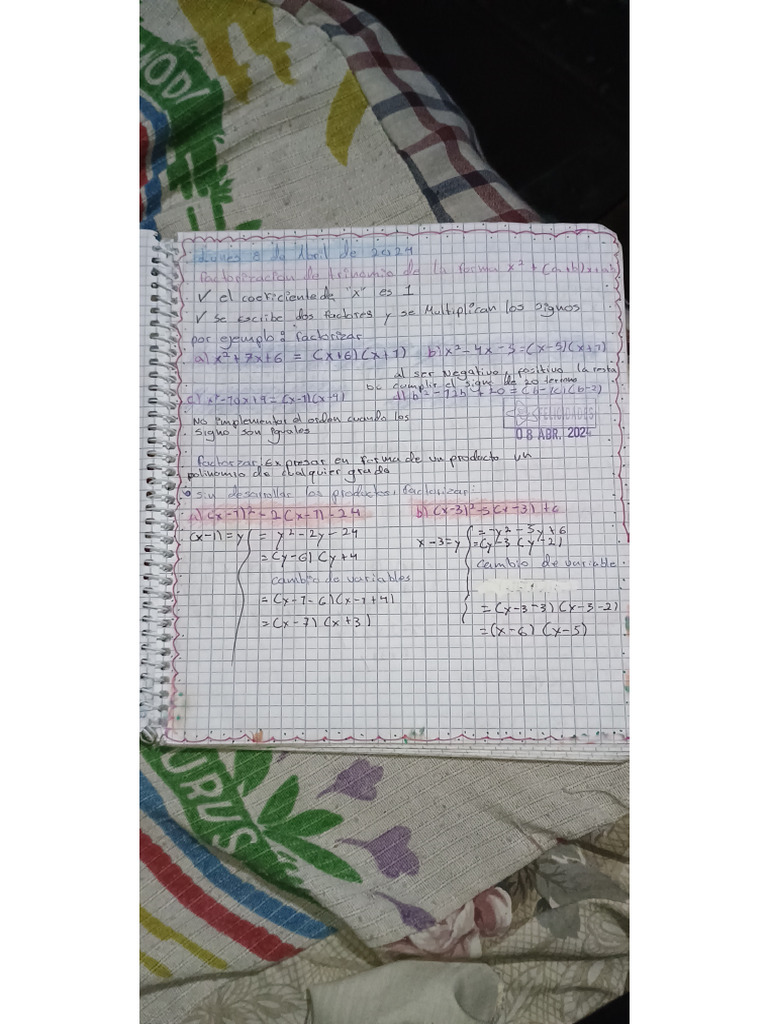 Lunes 8 de Abril de 2024
Factorización de trinomio de la forma x² + (a+b)x+ab
✓ el coeficiente de "x" es 1
✓ se escribe dos factores y se Multiplican los signos
por ejemplo: factorizar
a) x² + 7x + 6 = (x+6)(x+1) b) x² - 4x - 5 = (x-5)(x+1)
al ser Negativo, positivo la resta
de cumplir el signo de 20 termino
c) x² - 10x + 9 = (x-1)(x-9) d) b² - 12b + 20 = (b-10)(b-2)
No implementar el orden cuando los
signo son iguales
08 ABR. 2024
factorizar: Expresar en forma de un producto un
polinomio de cualquier grado
sin desarrollar los productos, factorizar:
a) (x-1)² - 2(x-1) - 24 b) (x-3)² - 5(x-3) + 6
(x-1) = y = y² - 2y - 24 x-3 = y = y² - 5y + 6
= (y-6)(y+4 = (y-3(y-2)
cambio de variables cambio de variable
= (x-1-6)(x-1+4) = (x-3-3)(x-3-2)
= (x-7)(x+3) = (x-6)(x-5)
MODI
URUS